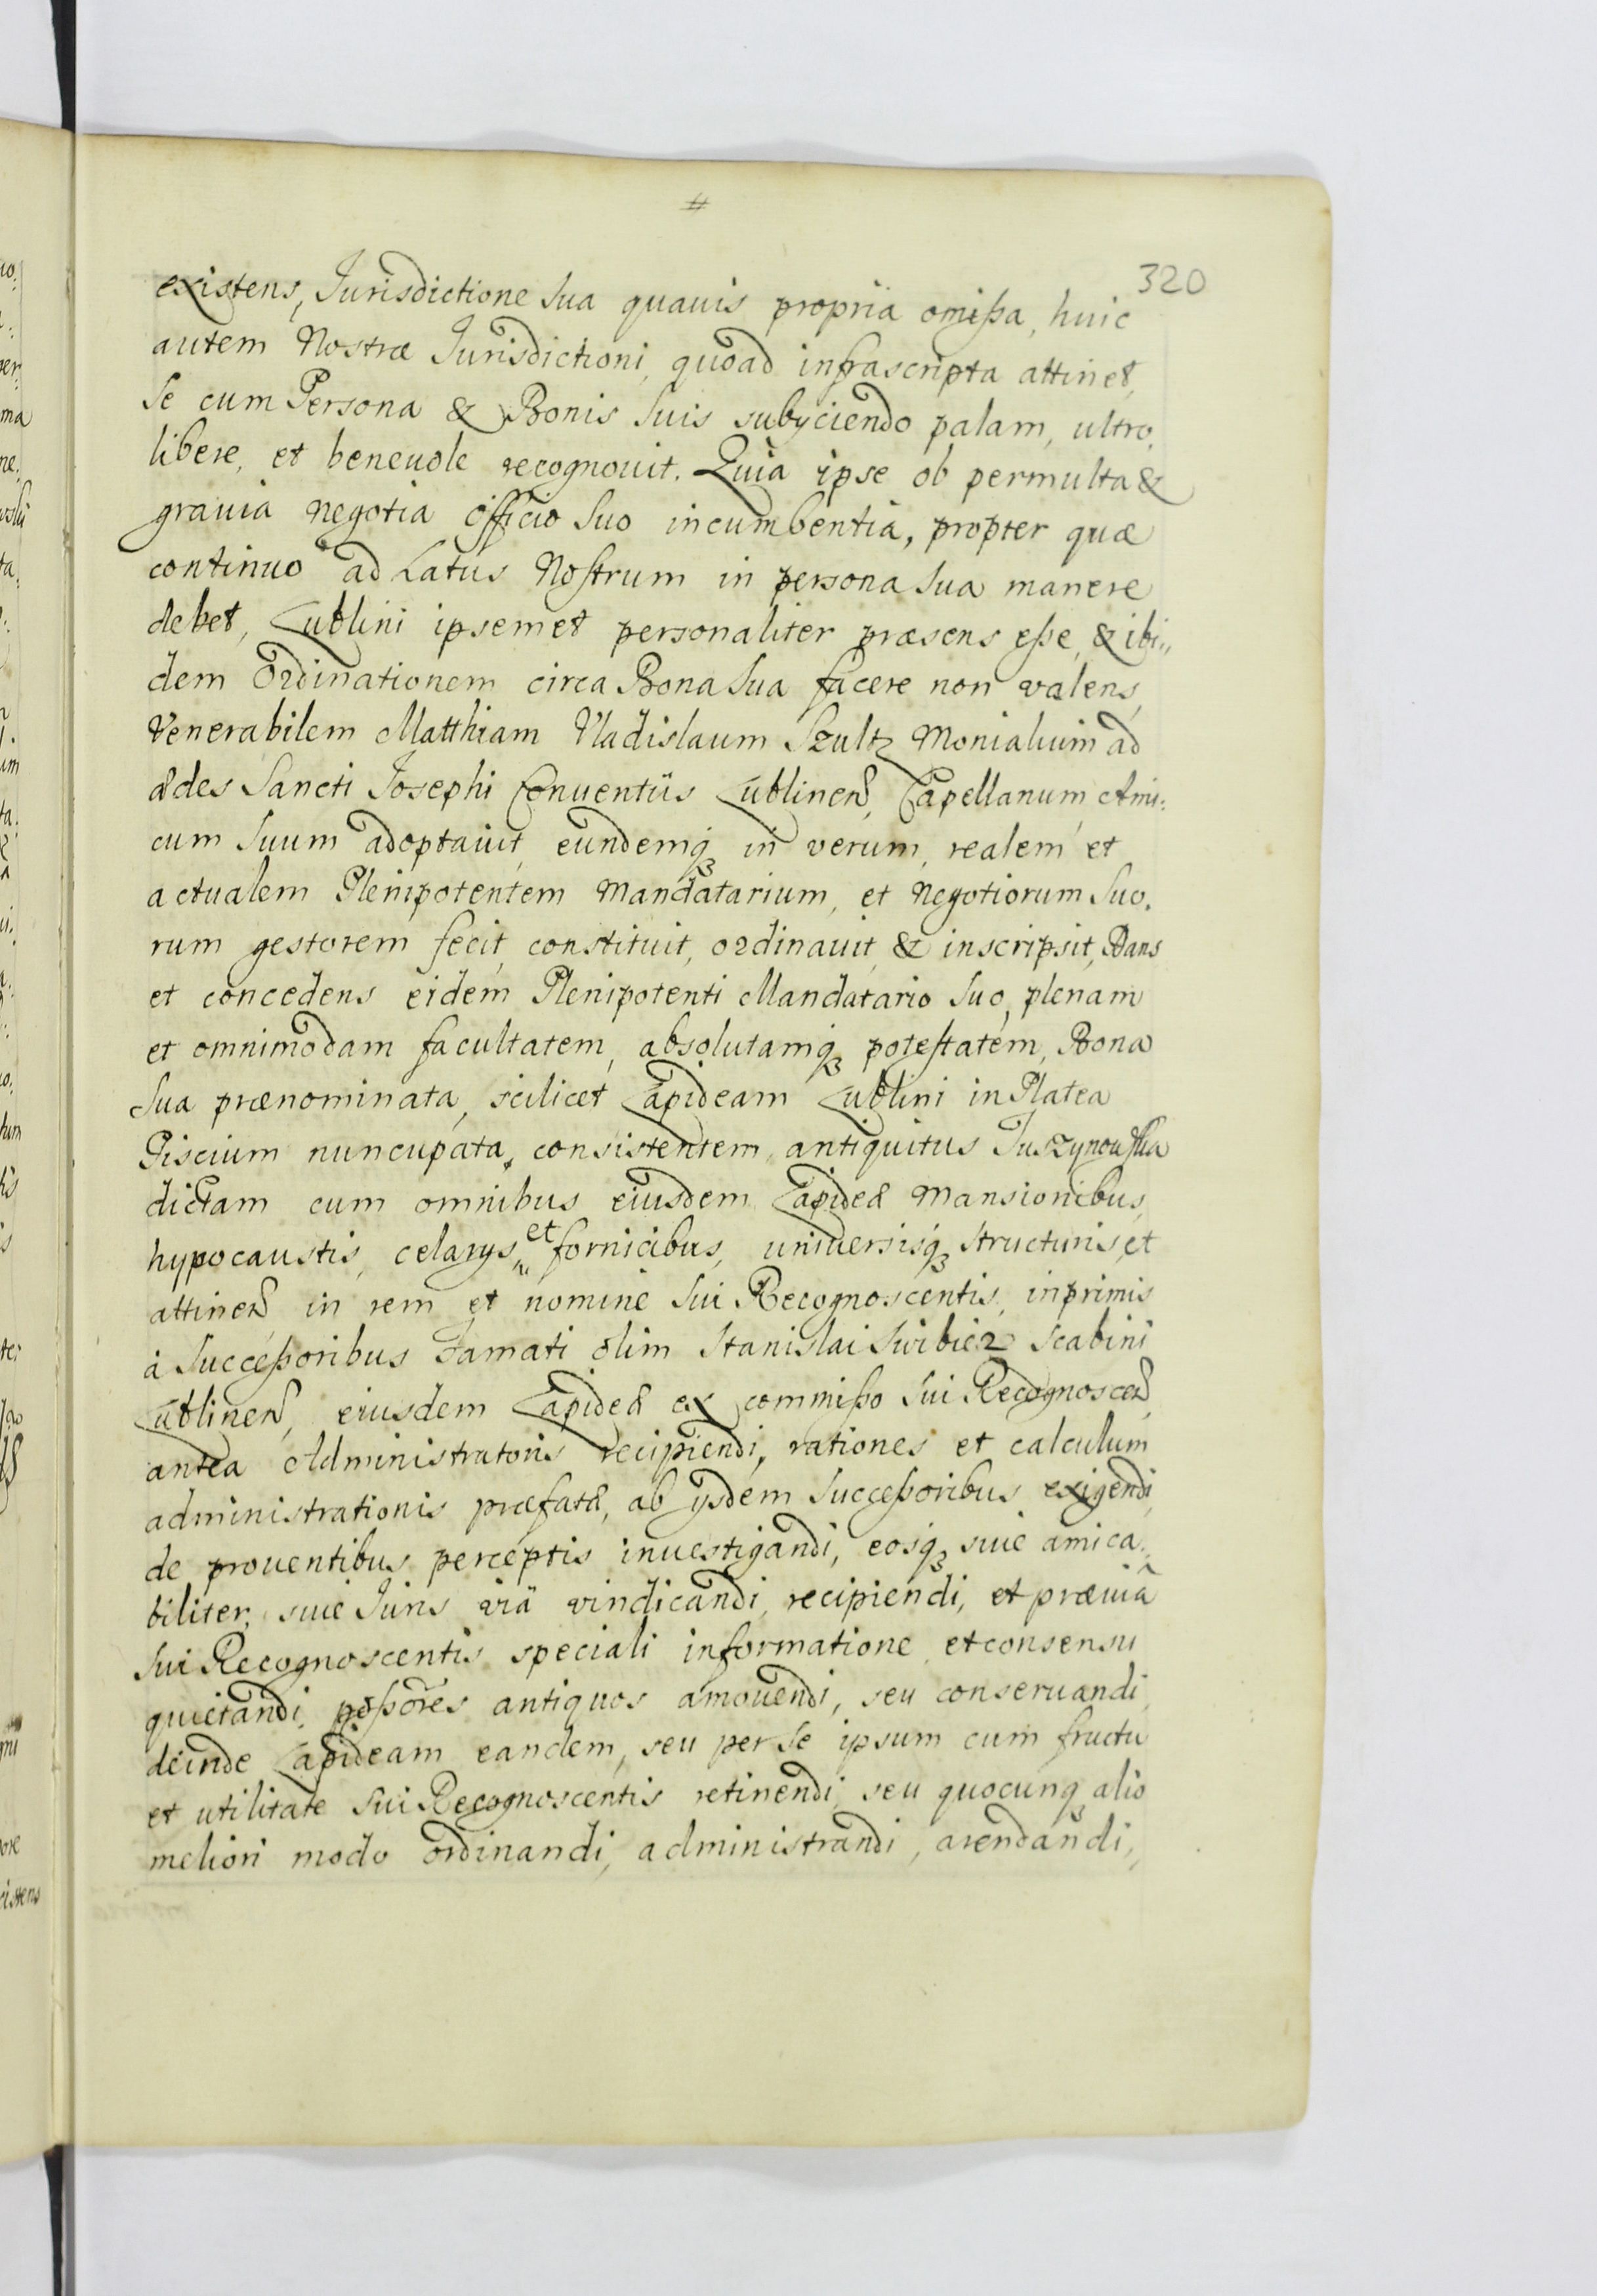 #
320
existens, Jurisdictione Sua quauis propria omißa, huic
autem Nostræ Jurisdictioni, quoad infrascripta attinet,
Se cum Persona & Bonis Suis subyciendo palam, ultro,
libere, et beneuole recognouit. Quia ipse ob permulta &
grauia negotia officio Suo incumbentia, propter quæ
continuo ad Latus Nostrum in persona Sua manere
debet, Lublini ipsemet personaliter præsens eße, & ibi„
dem Ordinationem circa Bona Sua facere non valens,
Venerabilem Matthiam Vladislaum Szultz Monialium ad
ædes Sancti Josephi Conuentus Lublinen̄, Capellanum, Ami:
cum Suum adoptauit, eundemq₃ in verum, realem et
actualem Plenipotentem Mandatarium, et Negotiorum Suo.
rum gestorem fecit, constituit, ordinauit, & inscripsit, Dans
et concedens eidem Plenipotenti Mandatario Suo, plenam
et omnimodam facultatem, absolutamq₃ potestatem, Bona
Sua prænominata, scilicet Lapideam Lublini in Platea
Piscium nuncupata, consistentem, antiquitus Juszynouska
dictam cum omnibus eiusdem Lapideæ Mansionibus,
hypocaustis, celarys, et fornicibus, uniuersisq₃ structuris, et
attinen̄ in rem et nomine Sui Recognoscentis, inprimis
à Succeßoribus Famati olim Stanislai Swibicz Scabini
Lublinen̄, eiusdem Lapideæ ex commißo Sui Recognoscen̄,
antea Administratoris recipiendi, rationes et calculum
administrationis præfatæ, ab ysdem Succeßoribus exigendi,
de prouentibus perceptis inuestigandi, eosq₃ siue amica„
biliter, siue Juris viä vindicandi, recipiendi, et præuiâ
Sui Recognoscentis speciali informatione, et consensu
quietandi, poßōres antiquos amouendi, seu conseruandi,
deinde Lapideam eandem, seu per Se ipsum cum fructu
et utilitate Sui Recognoscentis retinendi, seu quocunq₃ alio
meliori modo ordinandi, administrandi, arendandi,